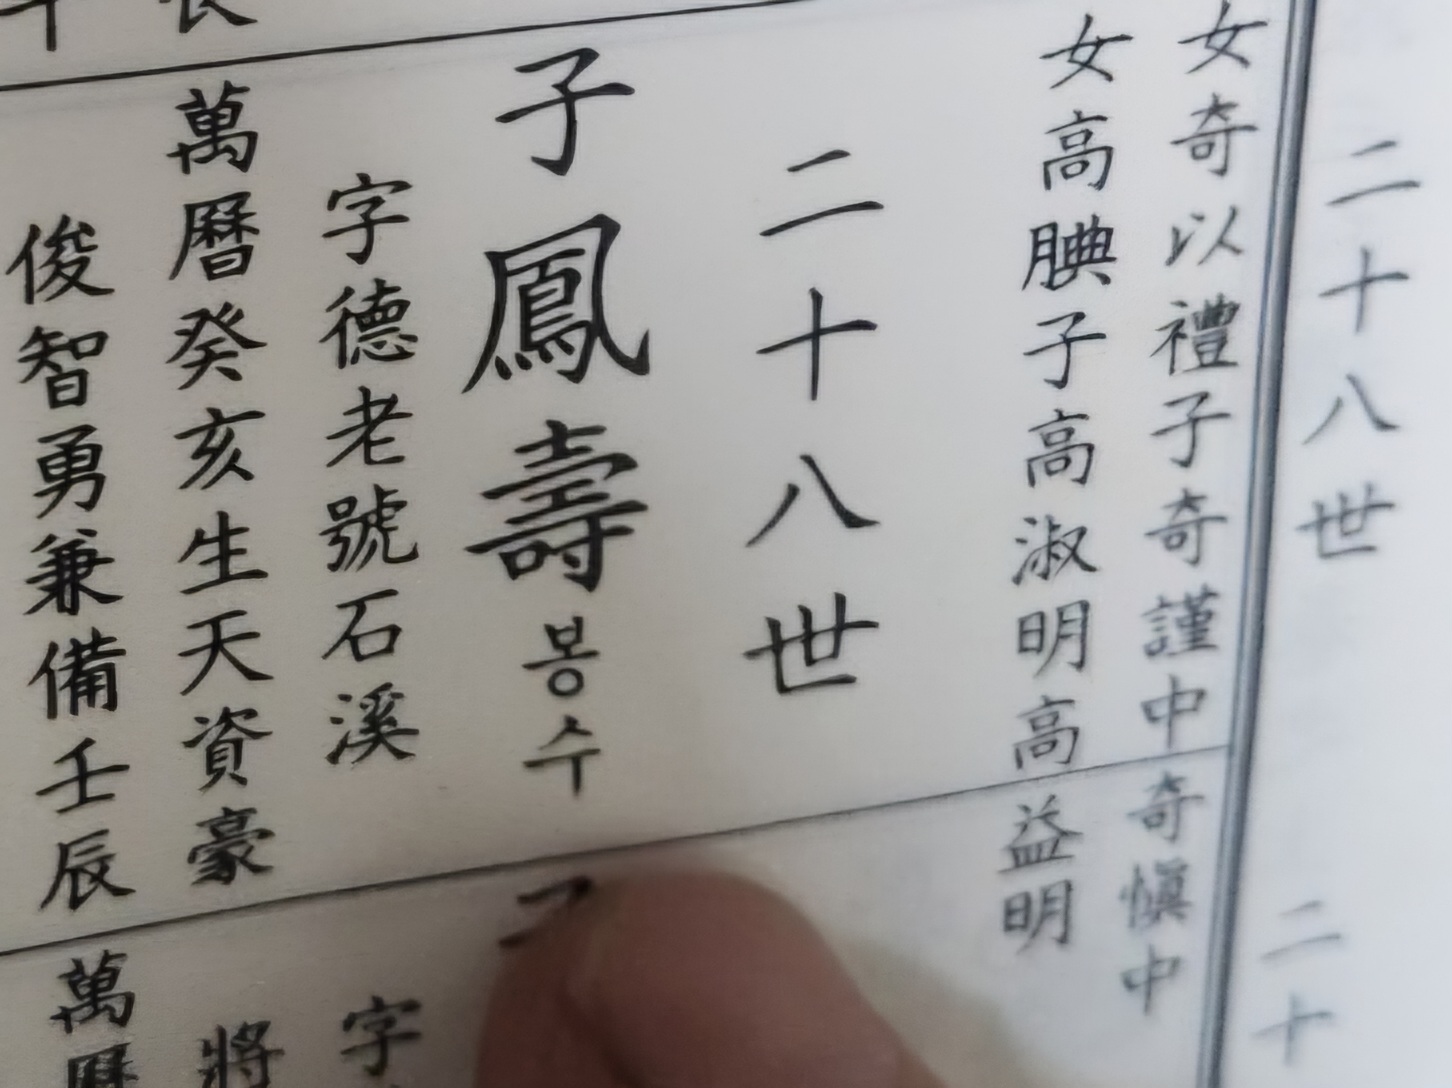 二十八世
女奇以禮子奇謹中
奇愼中
女高腆子高淑明高
益明
二十八世
子鳳壽봉수
字德老號石溪
萬曆癸亥生天資豪
俊智勇兼備壬辰
二十
字
將
萬曆